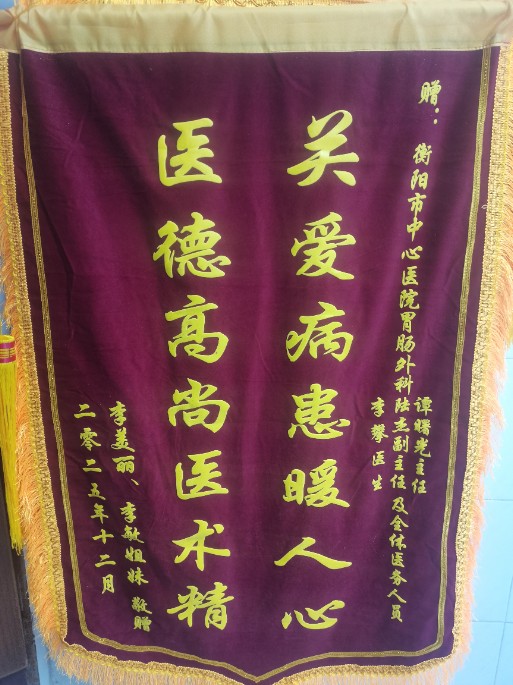 赠：衡阳市中心医院胃肠外科
谭曙光主任
陆杰副主任
李攀医生
及全体医务人员
关爱病患暖人心
医德高尚医术精
李美丽、李敏姐妹 敬赠
二零二五年十二月